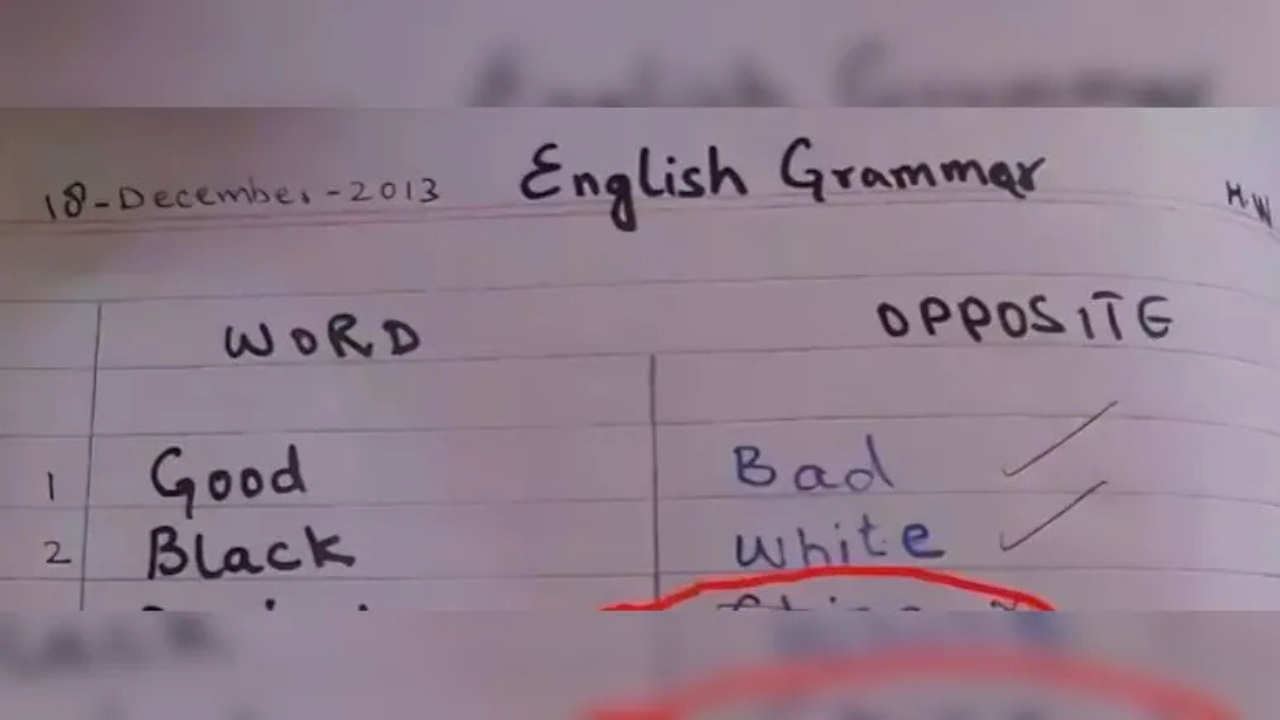 18-December-2013 English Grammar H.W
WORD OPPOSITE
1 Good Bad
2 Black White